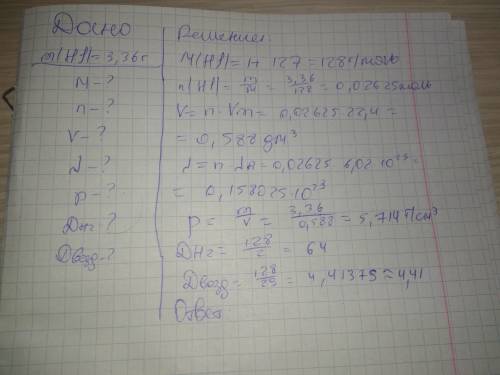 Дано
m(HJ)=3,36г
M-?
n-?
V-?
N-?
p-?
Дн2-?
Двозд-?
Решение:
M(HJ)=1+127=128г/моль
n(HJ)=m/M=3,36/128=0,02625моль
V=n·Vm=0,02625·22,4=
=0,588дм³
N=n·Na=0,02625·6,02·10²³=
=0,158025·10²³
p=m/V=3,36/0,588=5,714г/см³
Дн2=128/2=64
Двозд=128/29=4,41379≈4,41
Ответ